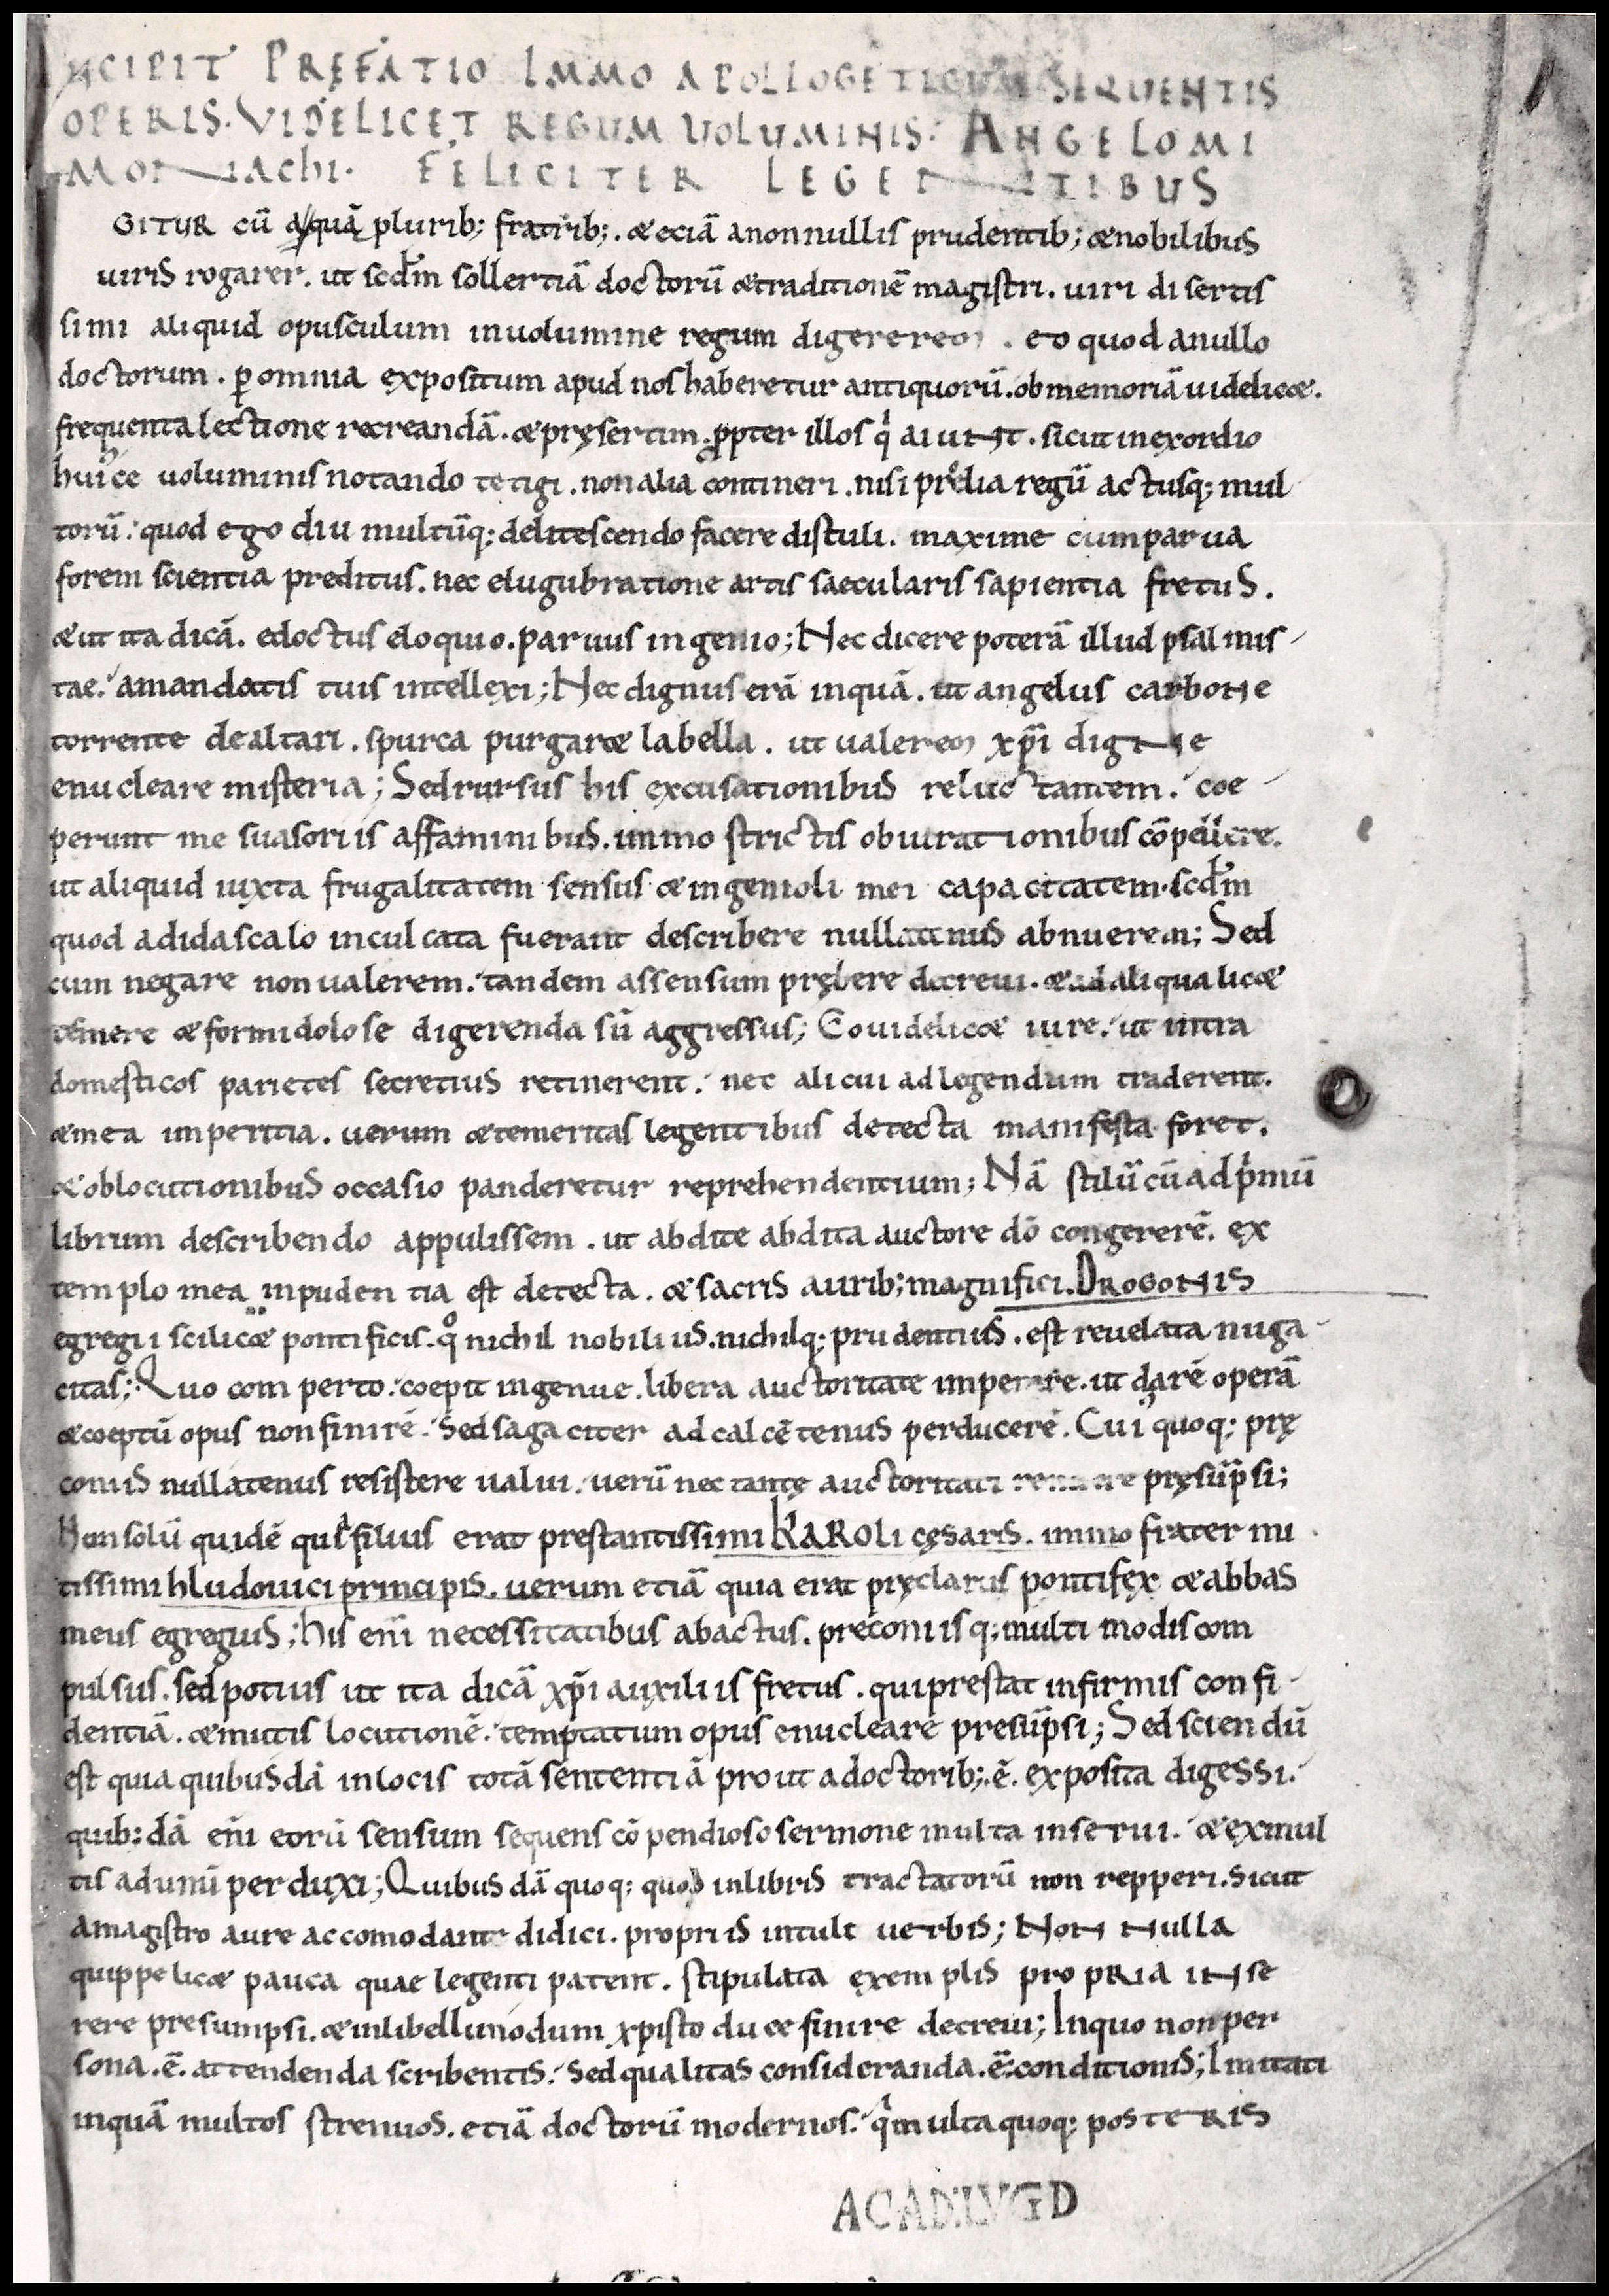 NCIPIT PRĘFATIO IMMO APOLLOGETICUM SEQUENTIS
OPERIS. VIDELICET REGUM VOLUMINIS. ANGELOMI
MONACHI. FELICITER LEGENTIBUS
GITUR cū plurib; fratrib;. & eciā anonnullis prudentib; & nobilibus
uiris rogarer. ut scdm̄ sollertiā doctorū & traditionē magistri. uiri disertis
simi aliquid opusculum inuolumine regum digererem. eo quod anullo
doctorum. ꝑ omnia expositum apud nos haberetur antiquorū. ob memoriā uidelic&.
frequenta lectione recreandā. & pręsertim. ꝓpter illos qͥ aiunt. sicut inexordio
huiꝰce uoluminis notando tetigi. non alia contineri. nisi prelia regū actusq; mul
torū. quod ego diu multūq; delitescendo facere distuli. maxime cum parua
forem scientia preditus. nec elugubratione artis saecularis sapientia fretus.
& ut ita dicā. edoctus eloquio. paruus ingenio; Nec dicere poterā illud psalmis
tae. amandatis tuis intellexi; Nec dignus erā inquā. ut angelus carbone
torrente dealtari. spurca purgar& labella. ut ualerem xp̄i digne
enucleare misteria; Sed rursus his excusationibus reluctantem. coe
perunt me suasoriis affaminibus. immo strictis obiurationibus cōpellere.
ut aliquid iuxta frugalitatem sensus & ingenioli mei capacitatem. scdm̄
quod adidascalo inculcata fuerant describere nullatenus abnuerem; Sed
cum negare non ualerem. tandem assensum prębere decreui. & ad aliqua lic&
temere & formidolose digerenda sū aggressus; Eo uidelic& iure. ut intra
domesticos parietes secretius retinerent. nec alicui ad legendum traderent.
& mea imperitia. uerum & temeritas legentibus detecta manifesta foret.
& oblocutionibus occasio panderetur reprehendentium; Nā stilū cū ad pͥmū
librum describendo appulissem. ut abdite abdita auctore dō congererē. ex
templo mea inpudentia est detecta. & sacris aurib; magnifici. DROGONIS
egregii scilic& pontificis. qͦ nichil nobilius. nichilq; prudentius. est reuelata nuga
citas; Quo comperto. coepit ingenue. libera auctoritate imperare. ut darē operā
& coeptū opus non finirē. Sed sagaciter ad calcē tenus perducerē. Cuiꝰ quoq; prę
coniis nullatenus resistere ualui. uerū nec tantę auctoritati pręsūpsi;
Non solū quidē quia filius erat prestantissimi KAROLI cęsaris. immo frater mi
tissimi hludouuici principis. uerum etiā quia erat pręclarus pontifex & abbas
meus egregius; his enī necessitatibus abactus. preconiisq; multimodis com
pulsus. sed potius ut ita dicā xp̄i auxiliis fretus. qui prestat infirmis confi
dentiā. & mutis locutionē. temptatum opus enucleare presūpsi; Sed sciendū
est quia quibusdā in locis totā sententiā prout a doctorib;. ē. exposita digessi.
quib;dā enī eorū sensum sequens cōpendioso sermone multa inserui. & ex mul
tis adunū perduxi; Quibusdā quoq; quod inlibris tractatorū non repperi. sicut
amagistro aure accomodante didici. propriis intuli uerbis; Non nulla
quippe lic& pauca quae legenti patent. stipulata exemplis propria inse
rere presumpsi. & inlibelli modum xpisto duce finire decreui; In quo non per
sona. ē. attendenda scribentis. Sed qualitas consideranda. ē. conditionis; Imitati
inquā multos strenuos. etiā doctorū modernos. qͥ multa quoq; posteris
ACAD. LVGD